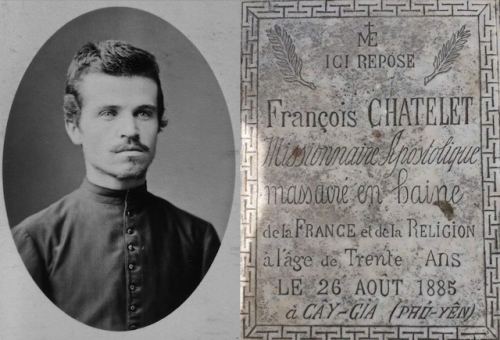 ME
ICI REPOSE
François CHATELET
Missionnaire Apostolique
massacré en haine
de la FRANCE et de la RELIGION
à l'âge de Trente Ans
LE 26 AOÛT 1885
à CÂY-GIA (PHÚ-YÊN)